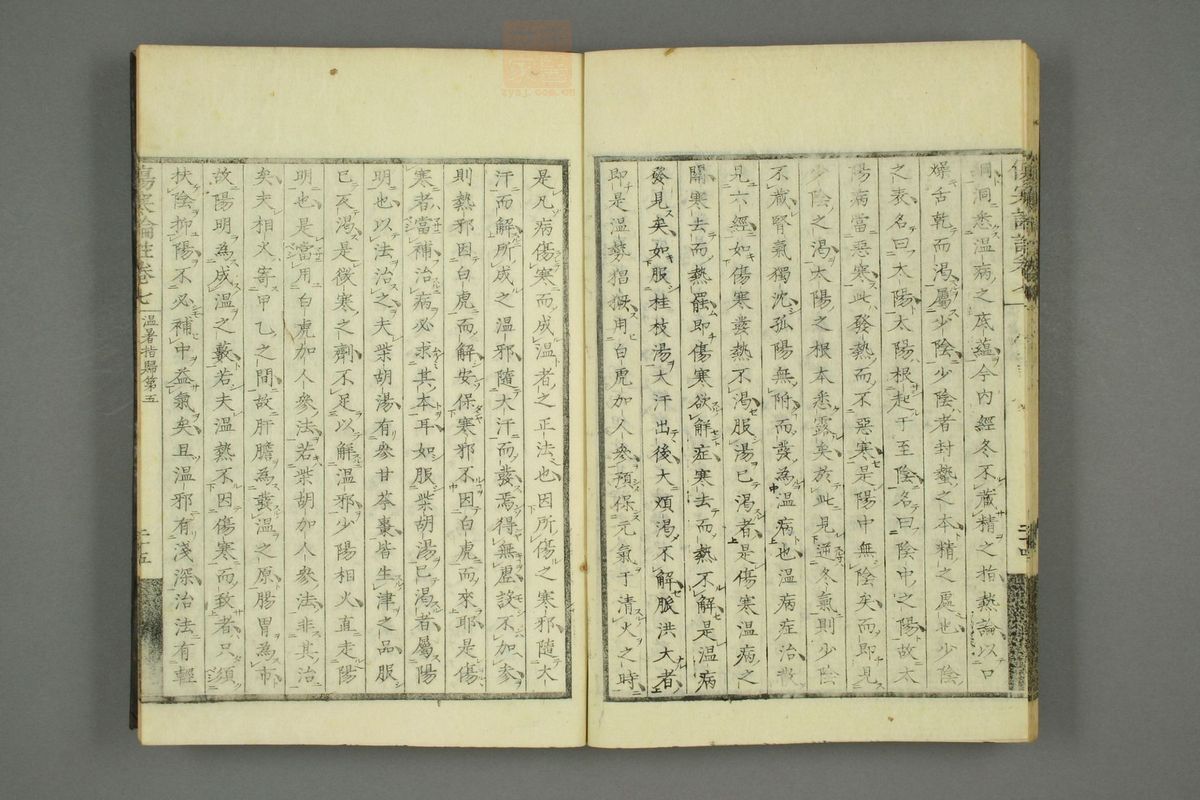 洞悉溫病之底蘊今內經冬不藏精之指熱論以口
燥舌乾而渴屬少陰少陰者封蟄之本精之處也少陰
之表名曰太陽太陽根起于至陰名曰陰中之陽故太
陽病當惡寒此發熱而不惡寒是陽中無陰矣而即見
少陰之渴太陽之根本悉露矣於此見逆冬氣則少陰
不藏腎氣獨沈孤陽無附而發為溫病也溫病症治散
見六經如傷寒發熱不渴服湯已渴者是傷寒溫病之
關寒去而熱罷即傷寒欲解症寒去而熱不解是溫病
發見矣如服桂枝湯大汗出後大煩渴不解脈洪大者
即是溫勢猖獗用白虎加人參預保元氣于清火之時
是凡病傷寒而成溫者之正法也因所傷之寒邪隨大
汗而解所成之溫邪隨大汗而發焉得無虛設不加參
則熱邪因白虎而解安保寒邪不因白虎而來耶是傷
寒者當補治病必求其本耳如服柴胡湯已渴者屬陽
明也以法治之夫柴胡湯有參甘芩棗皆生津之品服
已反渴是微寒之劑不足以解溫邪少陽相火直走陽
明也是當用白虎加人參法若柴胡加人參法非其治
矣夫相火寄甲乙之間故肝膽為發溫之原腸胃為市
故陽明為成溫之藪若夫溫熱不因傷寒而致者只須
扶陰抑陽不必補中益氣矣且溫邪有淺深治法有輕
傷寒論註卷七 溫暑指歸第五 二十五
zysj.com.cn